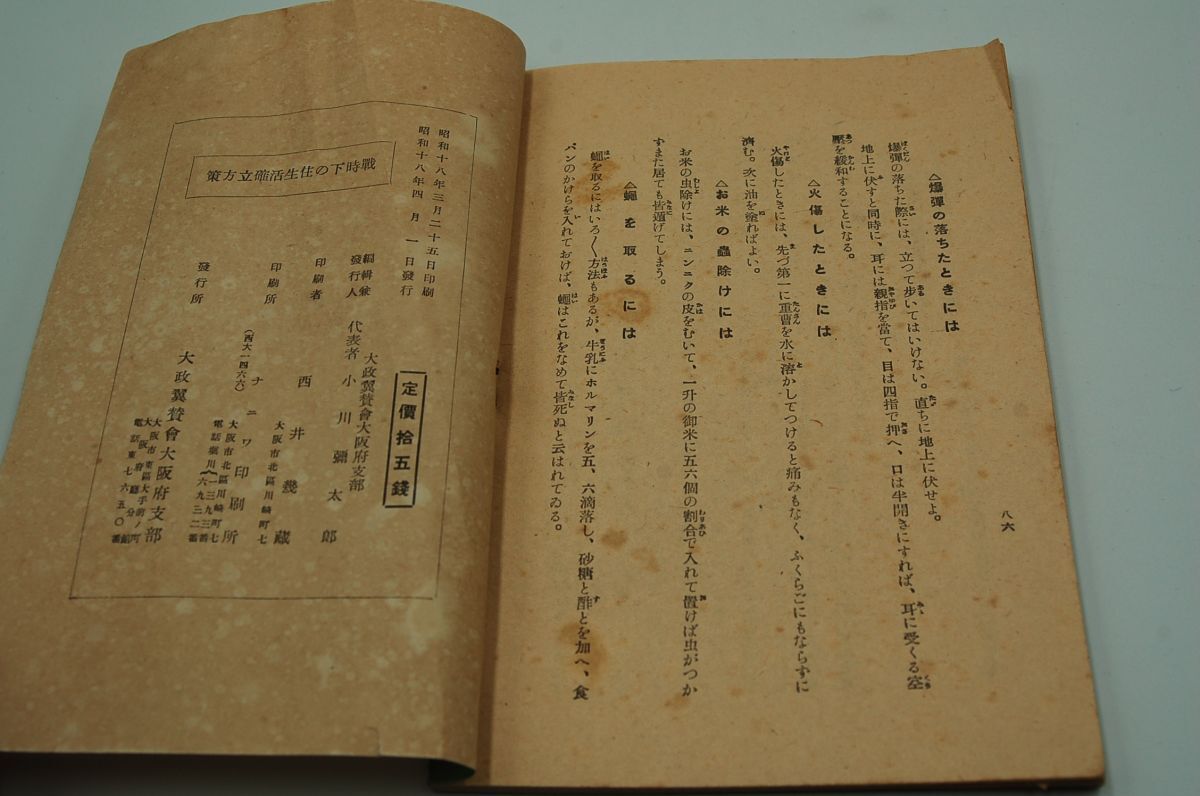 八六
△爆彈の落ちたときには
爆彈の落ちた際には、立つて歩いてはいけない。直ちに地上に伏せよ。
地上に伏すと同時に、耳には親指を當て、目は四指で押へ、口は半開きにすれば、耳に受くる空
壓を緩和することになる。
△火傷したときには
火傷したときには、先づ第一に重曹を水に溶かしてつけると痛みもなく、ふくらごにもならずに
濟む。次に油を塗ればよい。
△お米の蟲除けには
お米の虫除けには、ニンニクの皮をむいて、一升の御米に五六個の割合で入れて置けば虫がつか
ずまた居ても皆遁げてしまう。
△蠅を取るには
蠅を取るにはいろ〱方法もあるが、牛乳にホルマリンを五、六滴落し、砂糖と酢とを加へ、食
パンのかけらを入れておけば、蠅はこれをなめて皆死ぬと云はれてゐる。
昭和十八年三月二十五日印刷
昭和十八年四月一日發行
定價拾五錢
戰時下の住生活確立方策
編輯兼發行人
大政翼賛會大阪府支部
代表者 小川彌太郎
印刷者
大阪市北區川崎町七
西井幾藏
印刷所
大阪市北區川崎町七
電話堀川(一三九三番 六九三二番
(西大一四六六)ナニワ印刷所
發行所
大阪市東區大手前ノ町
大阪府廳分館
電話東七六五〇番
大政翼賛會大阪府支部